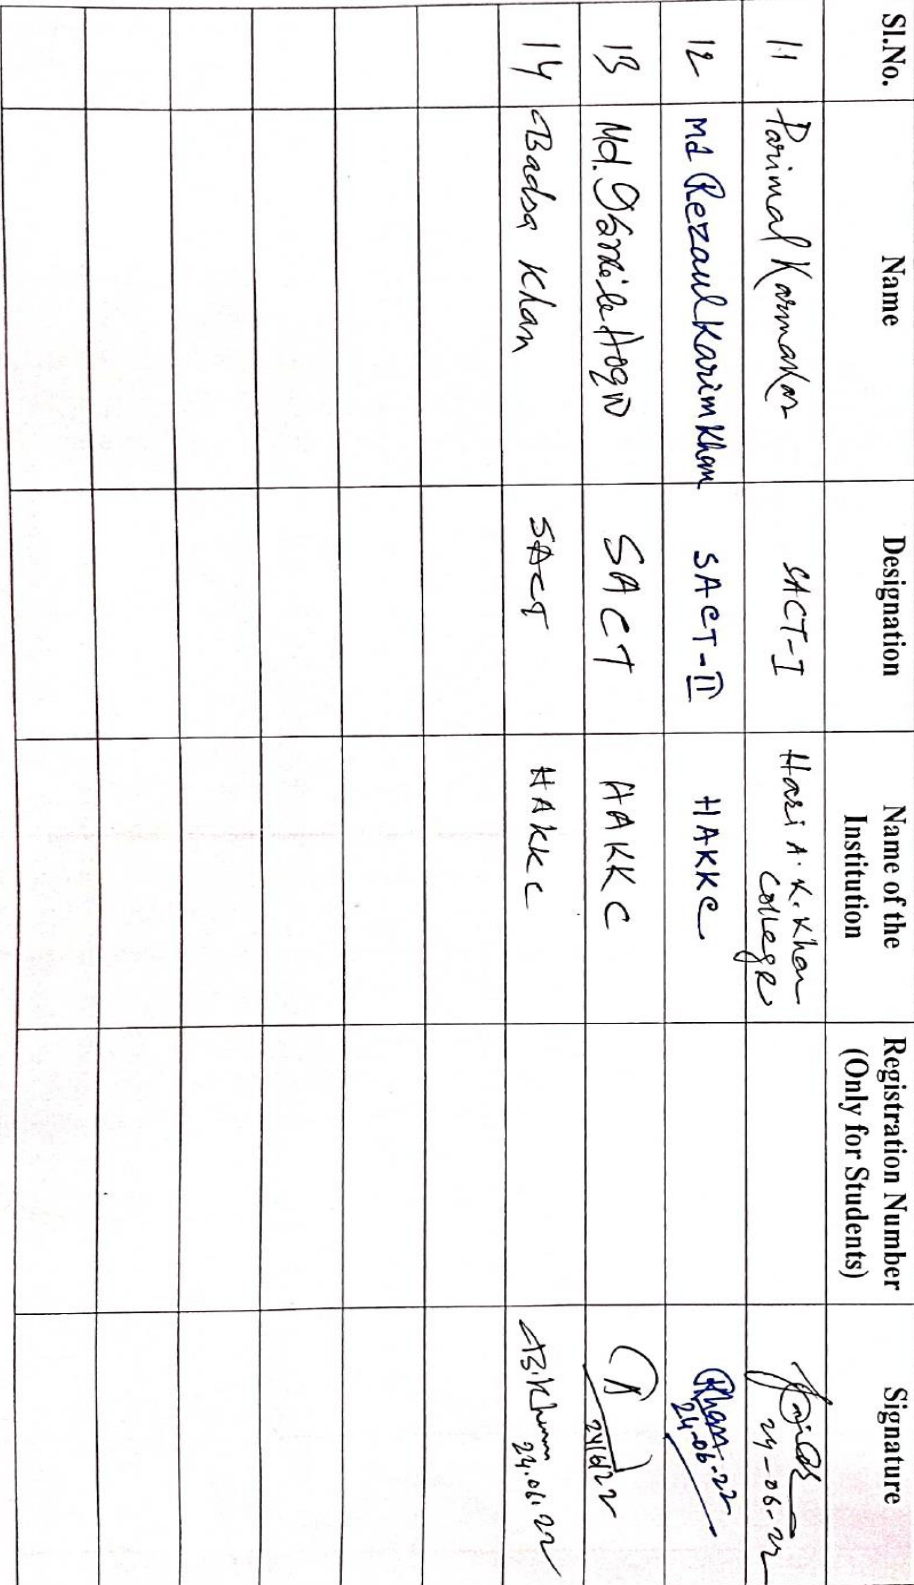 Sl.No. Name Designation Name of the Institution Registration Number (Only for Students) Signature
11 Parimal Karmakar SACT-I Hazi A. K. Khan College 24-06-22
12 Md Rezaul Karim Khan SACT-II HAKKC Khan 24-06-22
13 Md. Hoque SACT HAKKC 24/6/22
14 Badsa Khan SACT HAKKC B. Khan 24.06.22